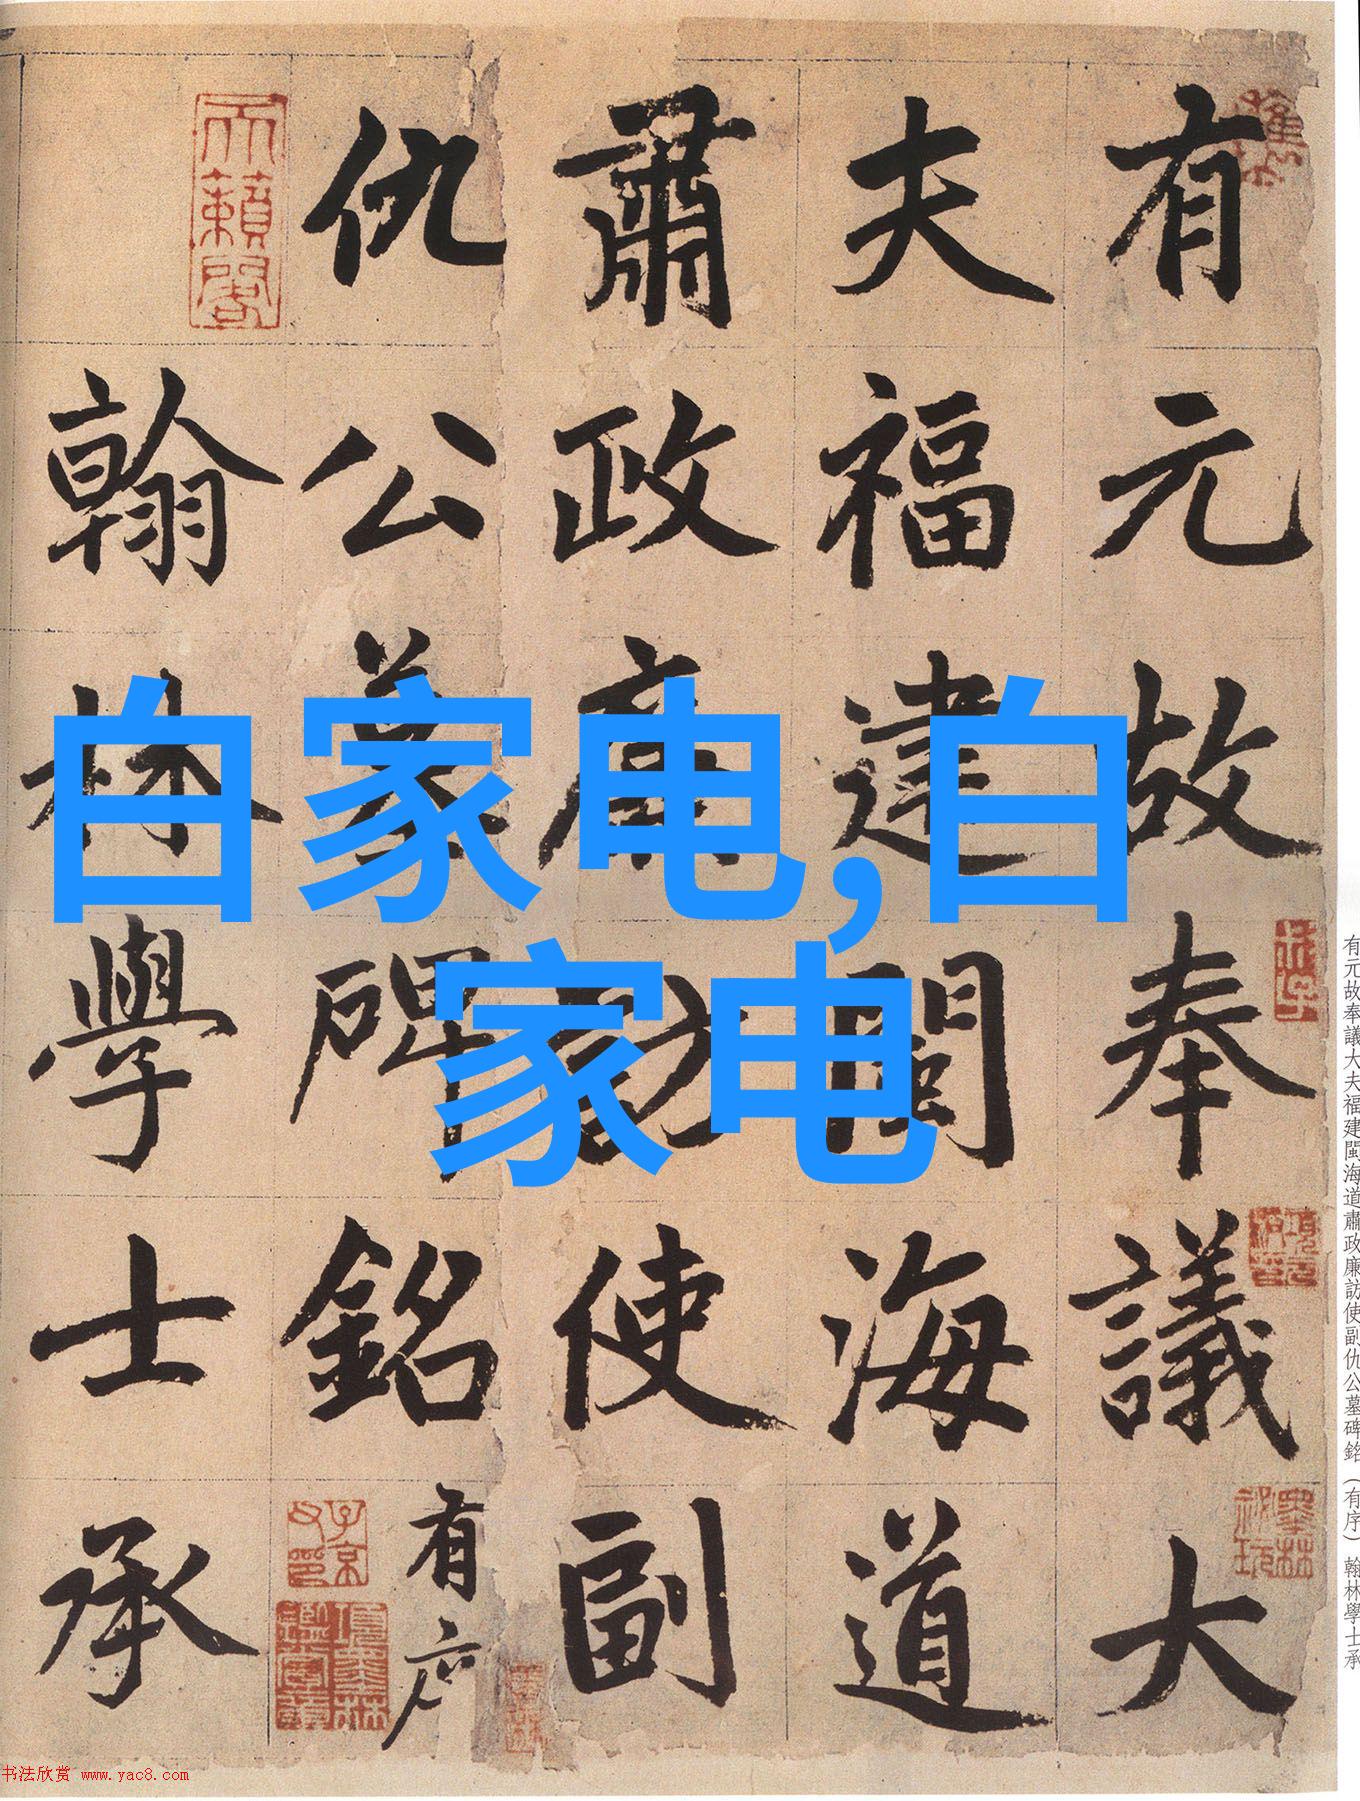 有元故奉議大
夫福建閩海道
肅政廉訪使副
仇公墓碑銘有序
翰林學士承
白家电,白
家电
天籟閣
子京父印
項墨林鑑賞章
墨林祕玩
有元故奉議大夫福建閩海道肅政廉訪使副仇公墓碑銘（有序）翰林學士承
书法欣赏 www.yac8.com